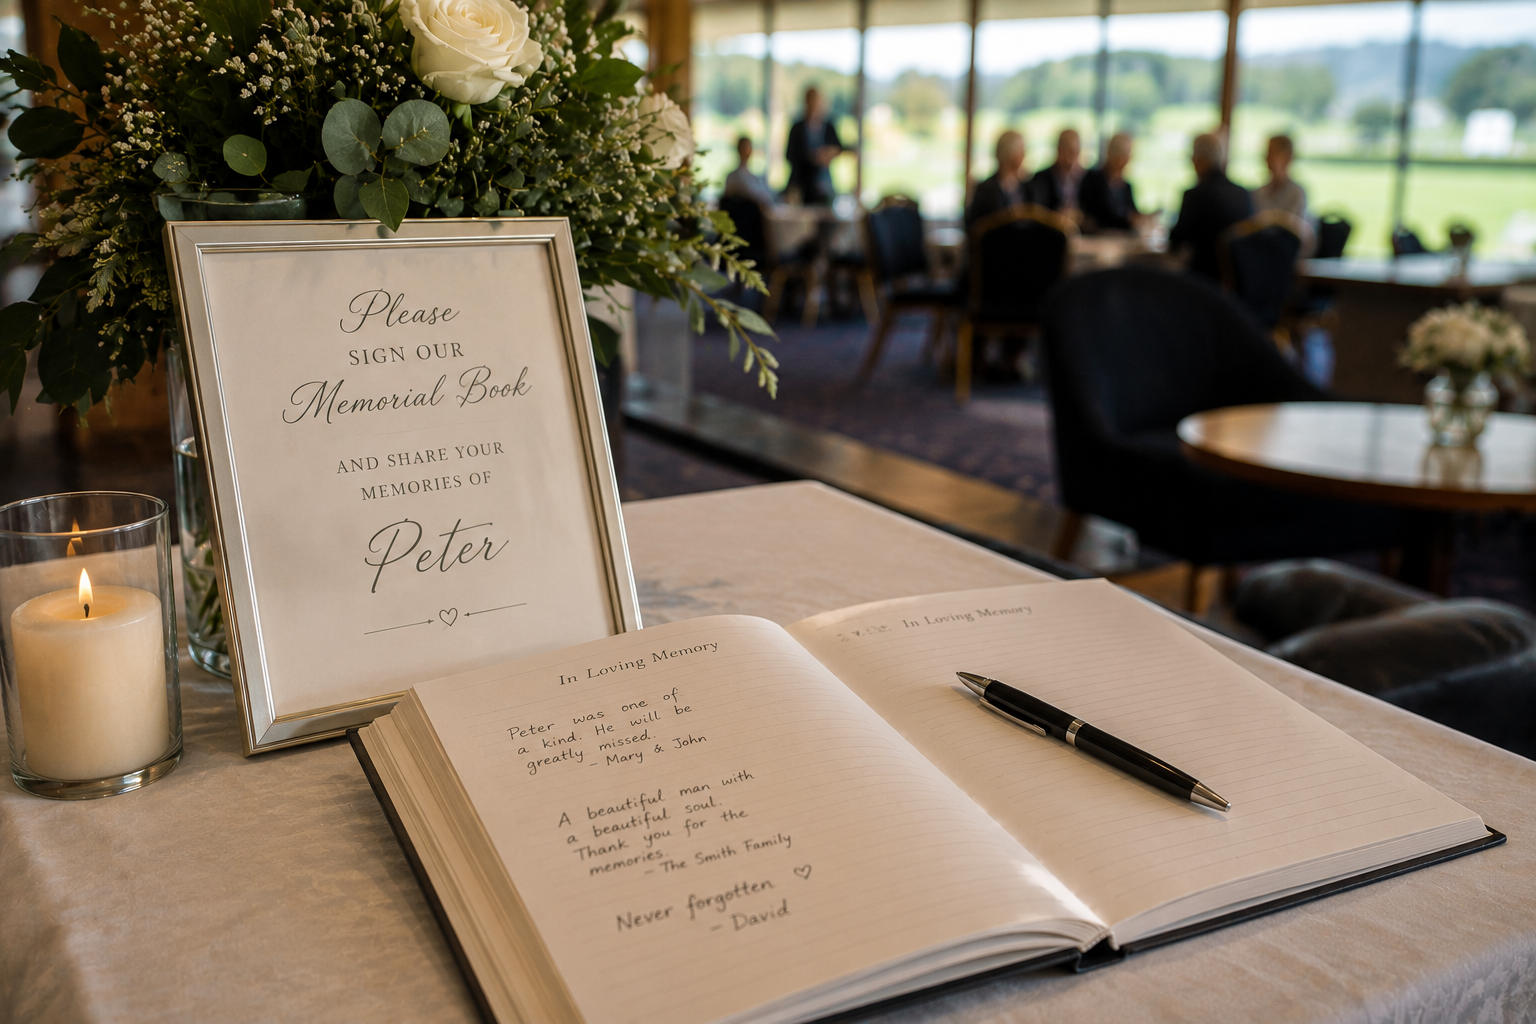 Please
SIGN OUR
Memorial Book
AND SHARE YOUR
MEMORIES OF
Peter
In Loving Memory
Peter was one of
a kind. He will be
greatly missed.
– Mary & John
A beautiful man with
a beautiful soul.
Thank you for the
memories.
– The Smith Family
Never forgotten ♡
– David
In Loving Memory